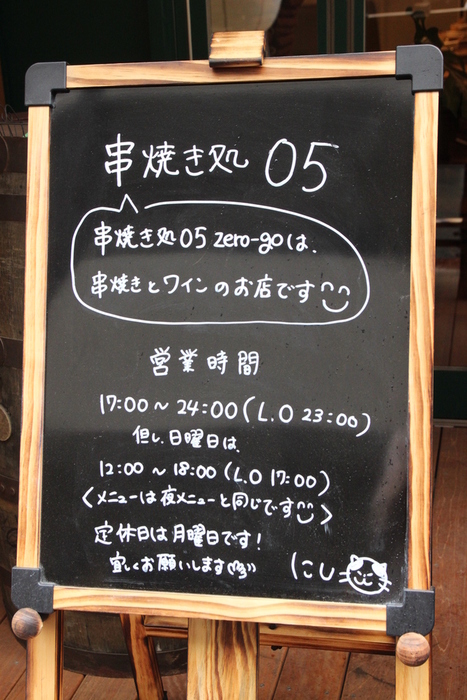 串焼き処 05
串焼き処05 zero-goは、
串焼きとワインのお店です
営業時間
17:00～24:00(L.O 23:00)
但し、日曜日は、
12:00～18:00(L.O 17:00)
〈メニューは夜メニューと同じです〉
定休日は月曜日です!
宜しくお願いします
にし